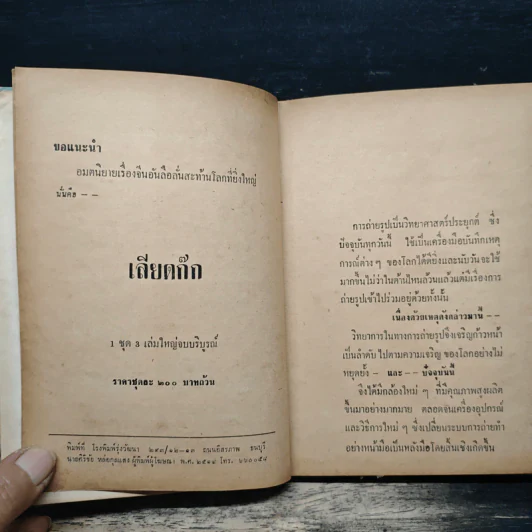 ขอแนะนำ
อมตนิยายเรื่องจีนอันลือลั่นสะท้านโลกที่ยิ่งใหญ่
นั่นคือ - -
เลียดก๊ก
1 ชุด 3 เล่มใหญ่จบบริบูรณ์
ราคาชุดละ ๒๐๐ บาทถ้วน
พิมพ์ที่ โรงพิมพ์รุ่งวัฒนา ๒๙๓/๑๒-๑๓ ถนนอิสรภาพ ธนบุรี
ผู้พิมพ์ผู้โฆษณา พ.ศ. ๒๕๑๔ โทร. ๖๖๐๐๕๘
การถ่ายรูปเป็นวิทยาศาสตร์ประยุกต์ ซึ่ง
ปัจจุบันทุกวันนี้ ใช้เป็นเครื่องมือบันทึกเหตุ
การณ์ต่าง ๆ ของโลกได้ดียิ่งและนับวันจะใช้
มากขึ้นไม่ว่าในด้านไหนล้วนแล้วแต่มีเรื่องการ
ถ่ายรูปเข้าไปร่วมอยู่ด้วยทั้งนั้น
เนื่องด้วยเหตุดังกล่าวมานี้ - -
วิทยาการในทางการถ่ายรูปจึงเจริญก้าวหน้า
เป็นลำดับ ไปตามความเจริญ ของโลกอย่างไม่
หยุดยั้ง - และ - - ปัจจุบันนี้
จึงได้มีกล้องใหม่ ๆ ที่มีคุณภาพสูงผลิต
ขึ้นมาอย่างมากมาย ตลอดจนเครื่องอุปกรณ์
และวิธีการใหม่ ๆ ซึ่งเปลี่ยนระบบการถ่ายทำ
อย่างหน้ามือเป็นหลังมือโดยสิ้นเชิงเกิดขึ้น